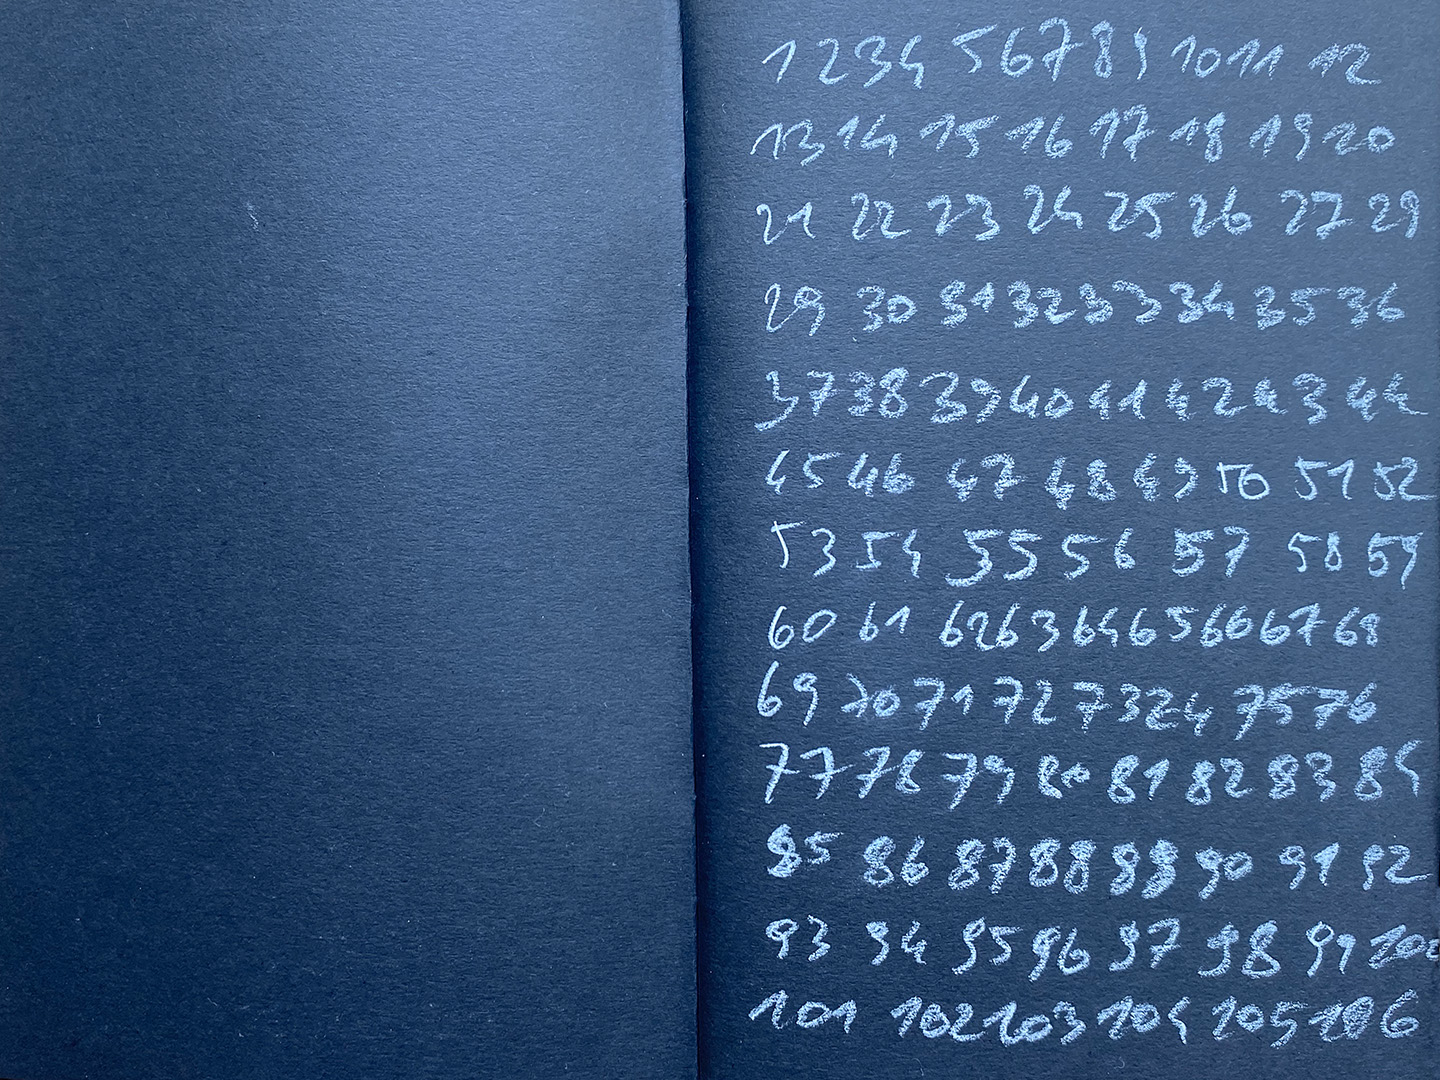 1 2 3 4 5 6 7 8 9 10 11 12
13 14 15 16 17 18 19 20
21 22 23 24 25 26 27 29
29 30 31 32 33 34 35 36
37 38 39 40 41 42 43 44
45 46 47 48 49 50 51 52
53 54 55 56 57 58 59
60 61 62 63 64 65 66 67 68
69 70 71 72 73 24 75 76
77 78 79 80 81 82 83 84
85 86 87 88 89 90 91 92
93 94 95 96 97 98 99 100
101 102 103 104 105 106